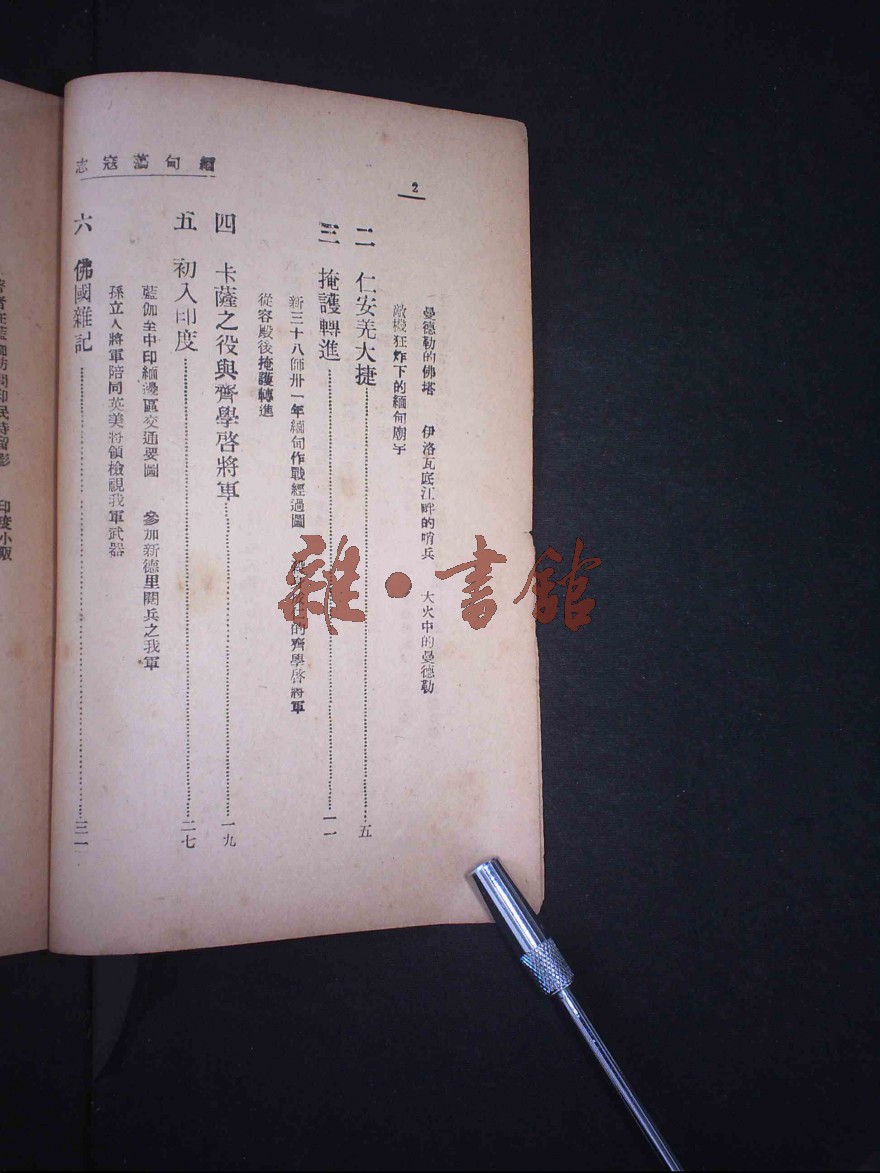 緬甸蕩寇志
2
曼德勒的佛塔 伊洛瓦底江畔的哨兵 大火中的曼德勒
敵機狂炸下的緬甸廟宇
二 仁安羌大捷……五
三 掩護轉進……一一
新三十八師卅一年緬甸作戰經過圖 的齊學啓將軍
從容殿後掩護轉進
四 卡薩之役與齊學啓將軍……一九
五 初入印度……二七
藍伽至中印緬邊區交通要圖 參加新德里閱兵之我軍
孫立人將軍陪同英美將領檢視我軍武器
六 佛國雜記……三一
印度小販
雜·書館